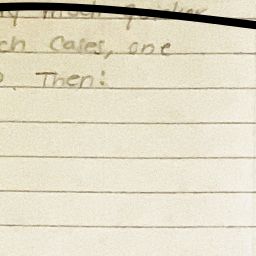 much quicker
ch cases, one
Then: